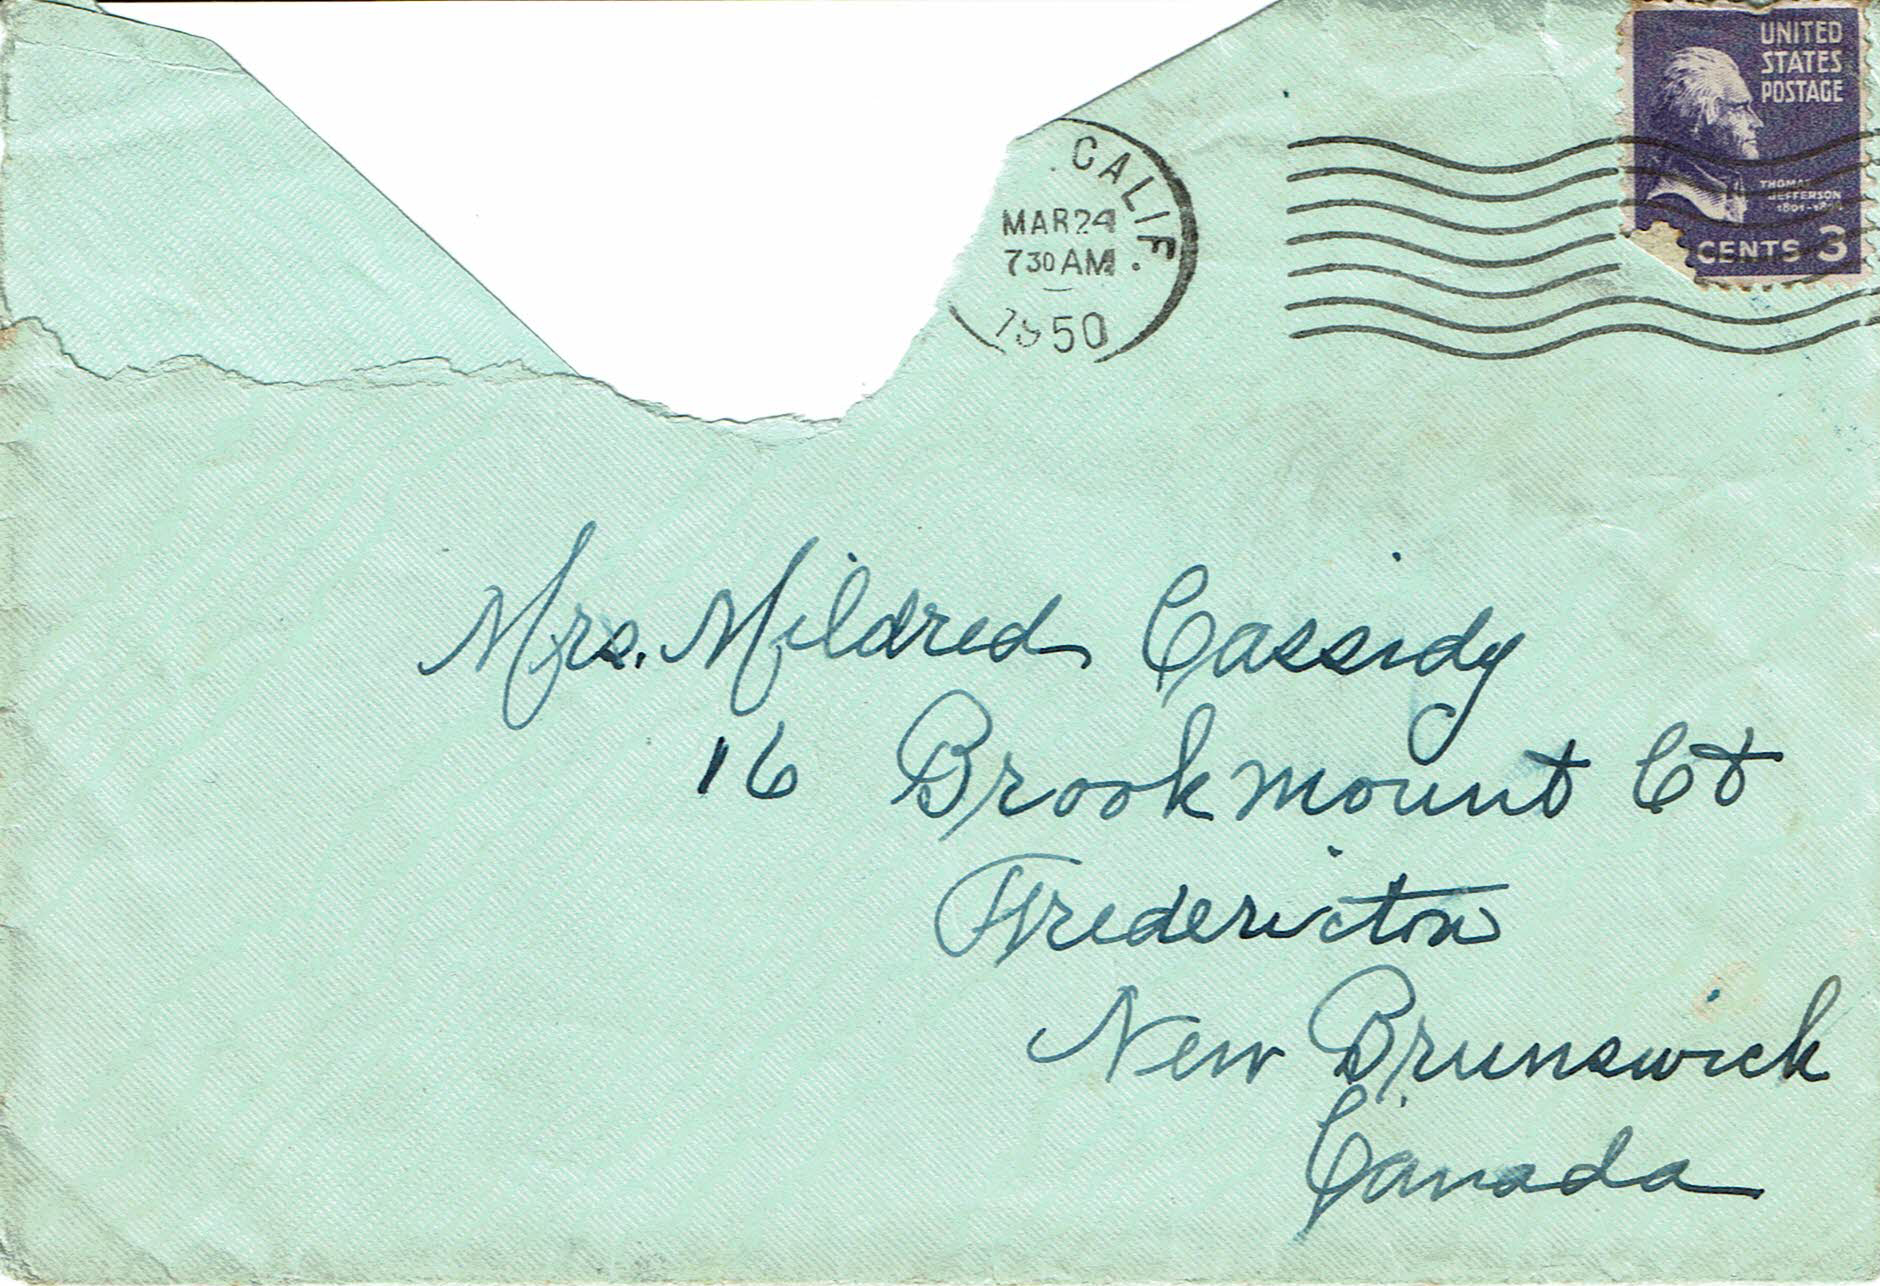 UNITED
STATES
POSTAGE
THOMAS
JEFFERSON
CENTS 3
. CALIF.
MAR 24
7 30 AM
1950
Mrs. Mildred Cassidy
16 Brookmount Ct
Fredericton
New Brunswick
Canada